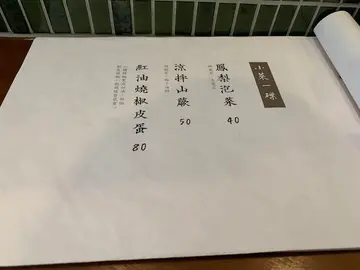 小菜一碟
鳳梨泡菜
40
涼拌山蘇
50
紅油燒椒皮蛋
80